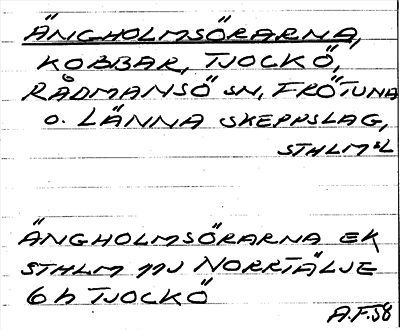 ÄNGHOLMSÖRARNA,
KOBBAR, TJOCKÖ,
RÅDMANSÖ SN, FRÖTUNA
O. LÄNNA SKEPPSLAG,
STHLMS L
ÄNGHOLMSÖRARNA EK
STHLM 11J NORRTÄLJE
6 h TJOCKÖ
A.F. 58